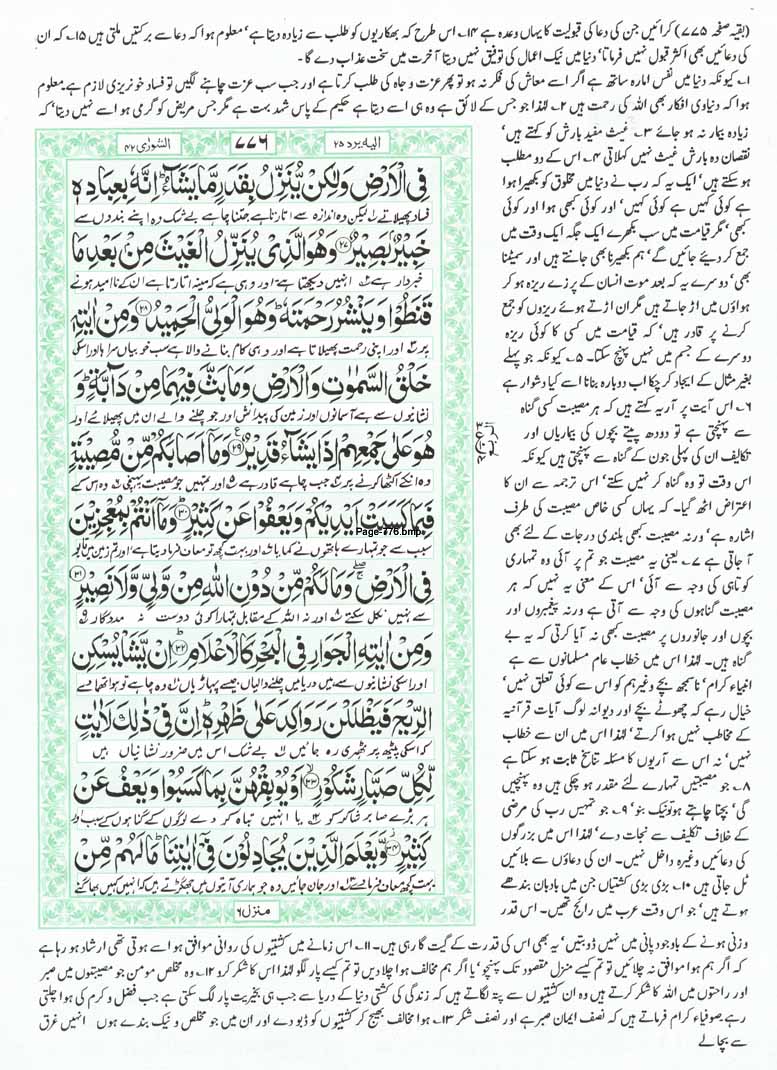 (بقیہ صفحہ ۷۷۵) کرائیں جن کی دعا کی قبولیت کا یہاں وعدہ ہے ۱۴۔ اس طرح کہ بھکاریوں کو طلب سے زیادہ دیتا ہے' معلوم ہوا کہ دعا سے برکتیں ملتی ہیں ۱۵۔ کہ ان
کی دعائیں بھی اکثر قبول نہیں فرماتا' دنیا میں نیک اعمال کی توفیق نہیں دیتا آخرت میں سخت عذاب دے گا۔
۱۔ کیونکہ دنیا میں نفس امارہ ساتھ ہے اگر اسے معاش کی فکر نہ ہو تو پھر عزت و جاہ کی طلب کرتا ہے اور جب سب عزت چاہنے لگیں تو فساد خونریزی لازم ہے معلوم
ہوا کہ دنیاوی افکار بھی اللہ کی رحمت ہیں ۲۔ لہٰذا جو جس کے لائق ہے وہ ہی اسے دیتا ہے حکیم کے پاس شہد بہت ہے مگر جس مریض کو گرمی ہو اسے نہیں دیتا' کہ
زیادہ بیمار نہ ہو جائے ۳۔ غیث مفید بارش کو کہتے ہیں'
نقصان دہ بارش غیث نہیں کہلاتی ۴۔ اس کے دو مطلب
ہو سکتے ہیں' ایک یہ کہ رب نے دنیا میں مخلوق کو بکھیرا ہوا
ہے کوئی کہیں ہے کوئی کہیں' اور کوئی کبھی ہوا اور کوئی
کبھی' مگر قیامت میں سب بکھرے ایک جگہ ایک وقت میں
جمع کر دیئے جائیں گے' ہم بکھیرنا بھی جانتے ہیں اور سمیٹنا
بھی' دوسرے یہ کہ بعد موت انسان کے پرزے ریزہ ہو کر
ہواؤں میں اڑ جاتے ہیں مگر ان اڑتے ہوئے ریزوں کو جمع
کرنے پر قادر ہیں' کہ قیامت میں کسی کا کوئی ریزہ
دوسرے کے جسم میں نہیں پہنچ سکتا۔ ۵۔ کیونکہ جو پہلے
بغیر مثال کے ایجاد کر چکا اب دوبارہ بنانا اسے کیا دشوار ہے
۶۔ اس آیت پر آریہ کہتے ہیں کہ ہر مصیبت کسی گناہ
سے پہنچتی ہے تو دودھ پیتے بچوں کی بیماریاں اور
تکالیف ان کی پہلی جون کے گناہ سے پہنچتی ہیں کیونکہ
اس وقت تو وہ گناہ کر نہیں سکتے' اس ترجمہ سے ان کا
اعتراض اٹھ گیا۔ کہ یہاں کسی خاص مصیبت کی طرف
اشارہ ہے' ورنہ مصیبت کبھی بلندی درجات کے لئے بھی
آ جاتی ہے ۷۔ یعنی یہ مصیبت جو تم پر آئی وہ تمہاری
کوتاہی کی وجہ سے آئی' اس کے معنی یہ نہیں کہ ہر
مصیبت گناہوں کی وجہ سے آتی ہے ورنہ پیغمبروں اور
بچوں اور جانوروں پر مصیبت کبھی نہ آیا کرتی کہ یہ بے
گناہ ہیں۔ لہٰذا اس میں خطاب عام مسلمانوں سے ہے
انبیاء کرام' ناسمجھ بچے وغیرہم کو اس سے کوئی تعلق نہیں'
خیال رہے کہ چھوٹے بچے اور دیوانہ لوگ آیات قرآنیہ
کے مخاطب نہیں ہوا کرتے' لہٰذا اس میں ان سے خطاب
نہیں' نہ اس سے آریوں کا مسئلہ تناسخ ثابت ہو سکتا ہے
۸۔ جو مصیبتیں تمہارے لئے مقدر ہو چکی ہیں وہ پہنچیں
گی' بچنا چاہتے ہو تو نیک بنو' ۹۔ جو تمہیں رب کی مرضی
کے خلاف تکالیف سے نجات دے' لہٰذا اس میں بزرگوں
کی دعائیں وغیرہ داخل نہیں۔ ان کی دعاؤں سے بلائیں
ٹل جاتی ہیں ۱۰۔ بڑی بڑی کشتیاں جن میں بادبان بندھے
ہوتے ہیں' جو اس وقت عرب میں رائج تھیں۔ اس قدر
الیہ یرد ۲۵
۷۷۶
الشوریٰ ۴۲
فِي الْاَرْضِ وَلٰكِنْ يُّنَزِّلُ بِقَدَرٍ مَّا يَشَآءُ اِنَّهٗ بِعِبَادِهٖ
فساد پھیلاتے لیکن وہ اندازہ سے اتارتا ہے جتنا چاہے بے شک وہ اپنے بندوں سے
خَبِيْرٌۢ بَصِيْرٌ ﴿۲۷﴾ وَهُوَ الَّذِيْ يُنَزِّلُ الْغَيْثَ مِنْۢ بَعْدِ مَا
خبردار ہے انہیں دیکھتا ہے اور وہی ہے کہ مینہ اتارتا ہے ان کے ناامید ہونے
قَنَطُوْا وَيَنْشُرُ رَحْمَتَهٗ وَهُوَ الْوَلِيُّ الْحَمِيْدُ ﴿۲۸﴾ وَمِنْ اٰيٰتِهٖ
پر اور اپنی رحمت پھیلاتا ہے اور وہی کام بنانے والا ہے سب خوبیاں سراہا اور اسکی
خَلْقُ السَّمٰوٰتِ وَالْاَرْضِ وَمَا بَثَّ فِيْهِمَا مِنْ دَآبَّةٍ وَ
نشانیوں سے ہے آسمانوں اور زمین کی پیدائش اور جو چلنے والے ان میں پھیلائے اور
هُوَ عَلٰى جَمْعِهِمْ اِذَا يَشَآءُ قَدِيْرٌ ﴿۲۹﴾ وَمَآ اَصَابَكُمْ مِّنْ مُّصِيْبَةٍ
وہ انکے اکٹھا کرنے پر جب چاہے قادر ہے اور تمہیں جو مصیبت پہنچی وہ اس کے
فَبِمَا كَسَبَتْ اَيْدِيْكُمْ وَيَعْفُوْا عَنْ كَثِيْرٍ ﴿۳۰﴾ وَمَآ اَنْتُمْ بِمُعْجِزِيْنَ
Page-776.bmp
سبب سے جو تمہارے ہاتھوں نے کمایا اور بہت کچھ تو معاف فرما دیتا ہے اور تم زمین میں قابو
فِي الْاَرْضِ وَمَا لَكُمْ مِّنْ دُوْنِ اللّٰهِ مِنْ وَّلِيٍّ وَّلَا نَصِيْرٍ ﴿۳۱﴾
سے نہیں نکل سکتے اور نہ اللہ کے مقابل تمہارا کوئی دوست نہ مددگار
وَمِنْ اٰيٰتِهِ الْجَوَارِ فِي الْبَحْرِ كَالْاَعْلَامِ ﴿۳۲﴾ اِنْ يَّشَاْ يُسْكِنِ
اور اسکی نشانیوں سے ہیں دریا میں چلنے والیاں جیسے پہاڑیاں وہ چاہے تو ہوا تھما دے
الرِّيْحَ فَيَظْلَلْنَ رَوَاكِدَ عَلٰى ظَهْرِهٖ اِنَّ فِيْ ذٰلِكَ لَاٰيٰتٍ
کہ اسکی پیٹھ پر ٹھہری رہ جائیں بے شک اس میں ضرور نشانیاں ہیں
لِّكُلِّ صَبَّارٍ شَكُوْرٍ ﴿۳۳﴾ اَوْ يُوْبِقْهُنَّ بِمَا كَسَبُوْا وَيَعْفُ عَنْ
ہر بڑے صابر شاکر کو یا انہیں تباہ کر دے لوگوں کے گناہوں کے سبب اور
كَثِيْرٍ ﴿۳۴﴾ وَّيَعْلَمَ الَّذِيْنَ يُجَادِلُوْنَ فِيْٓ اٰيٰتِنَا مَا لَهُمْ مِّنْ
بہت کچھ معاف فرما دے اور جان جائیں وہ جو ہماری آیتوں میں جھگڑتے ہیں کہ انہیں کہیں بھاگنے
منزل ۶
وزنی ہونے کے باوجود پانی میں نہیں ڈوبتیں' یہ بھی اس کی قدرت کے گیت گا رہی ہیں۔ ۱۱۔ اس زمانے میں کشتیوں کی روانی موافق ہوا سے ہوتی تھی ارشاد ہو رہا ہے
کہ اگر ہم ہوا موافق نہ چلائیں تو تم کیسے منزل مقصود تک پہنچو' یا اگر ہم مخالف ہوا چلا دیں تو تم کیسے پار لگو لہٰذا اس کا شکر کرو ۱۲۔ وہ مخلص مومن جو مصیبتوں میں صبر
اور راحتوں میں اللہ کا شکر کرتے ہیں وہ ان کشتیوں سے پتہ لگاتے ہیں کہ زندگی کی کشتی دنیا کے دریا سے جب ہی بخیریت پار لگ سکتی ہے جب فضل و کرم کی ہوا چلتی
رہے صوفیاء کرام فرماتے ہیں کہ نصف ایمان صبر ہے اور نصف شکر ۱۳۔ ہوا مخالف بھیج کر کشتیوں کو ڈبو دے اور ان میں جو مخلص و نیک بندے ہوں انہیں غرق
سے بچا لے